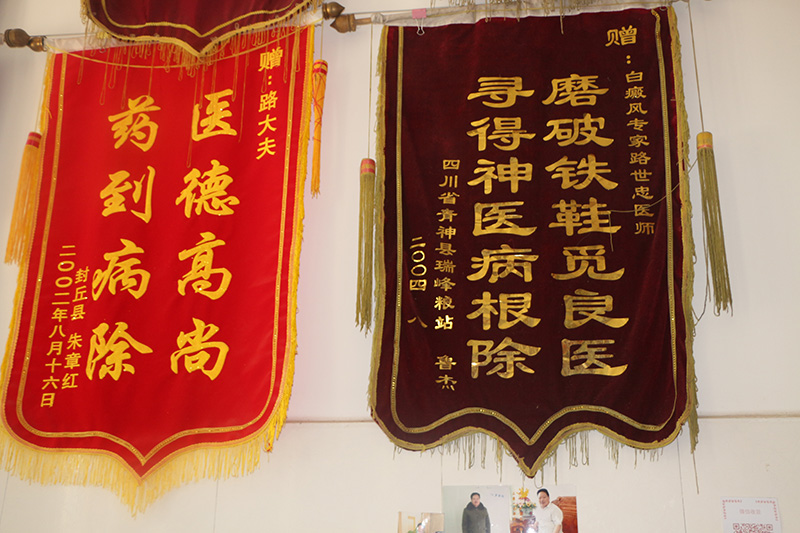 赠：路大夫
医德高尚
药到病除
封丘县 朱章红
二〇〇二年八月十六日
赠：白癜风专家路世忠医师
磨破铁鞋觅良医
寻得神医病根除
四川省青神县瑞峰粮站 鲁杰
二〇〇四 八